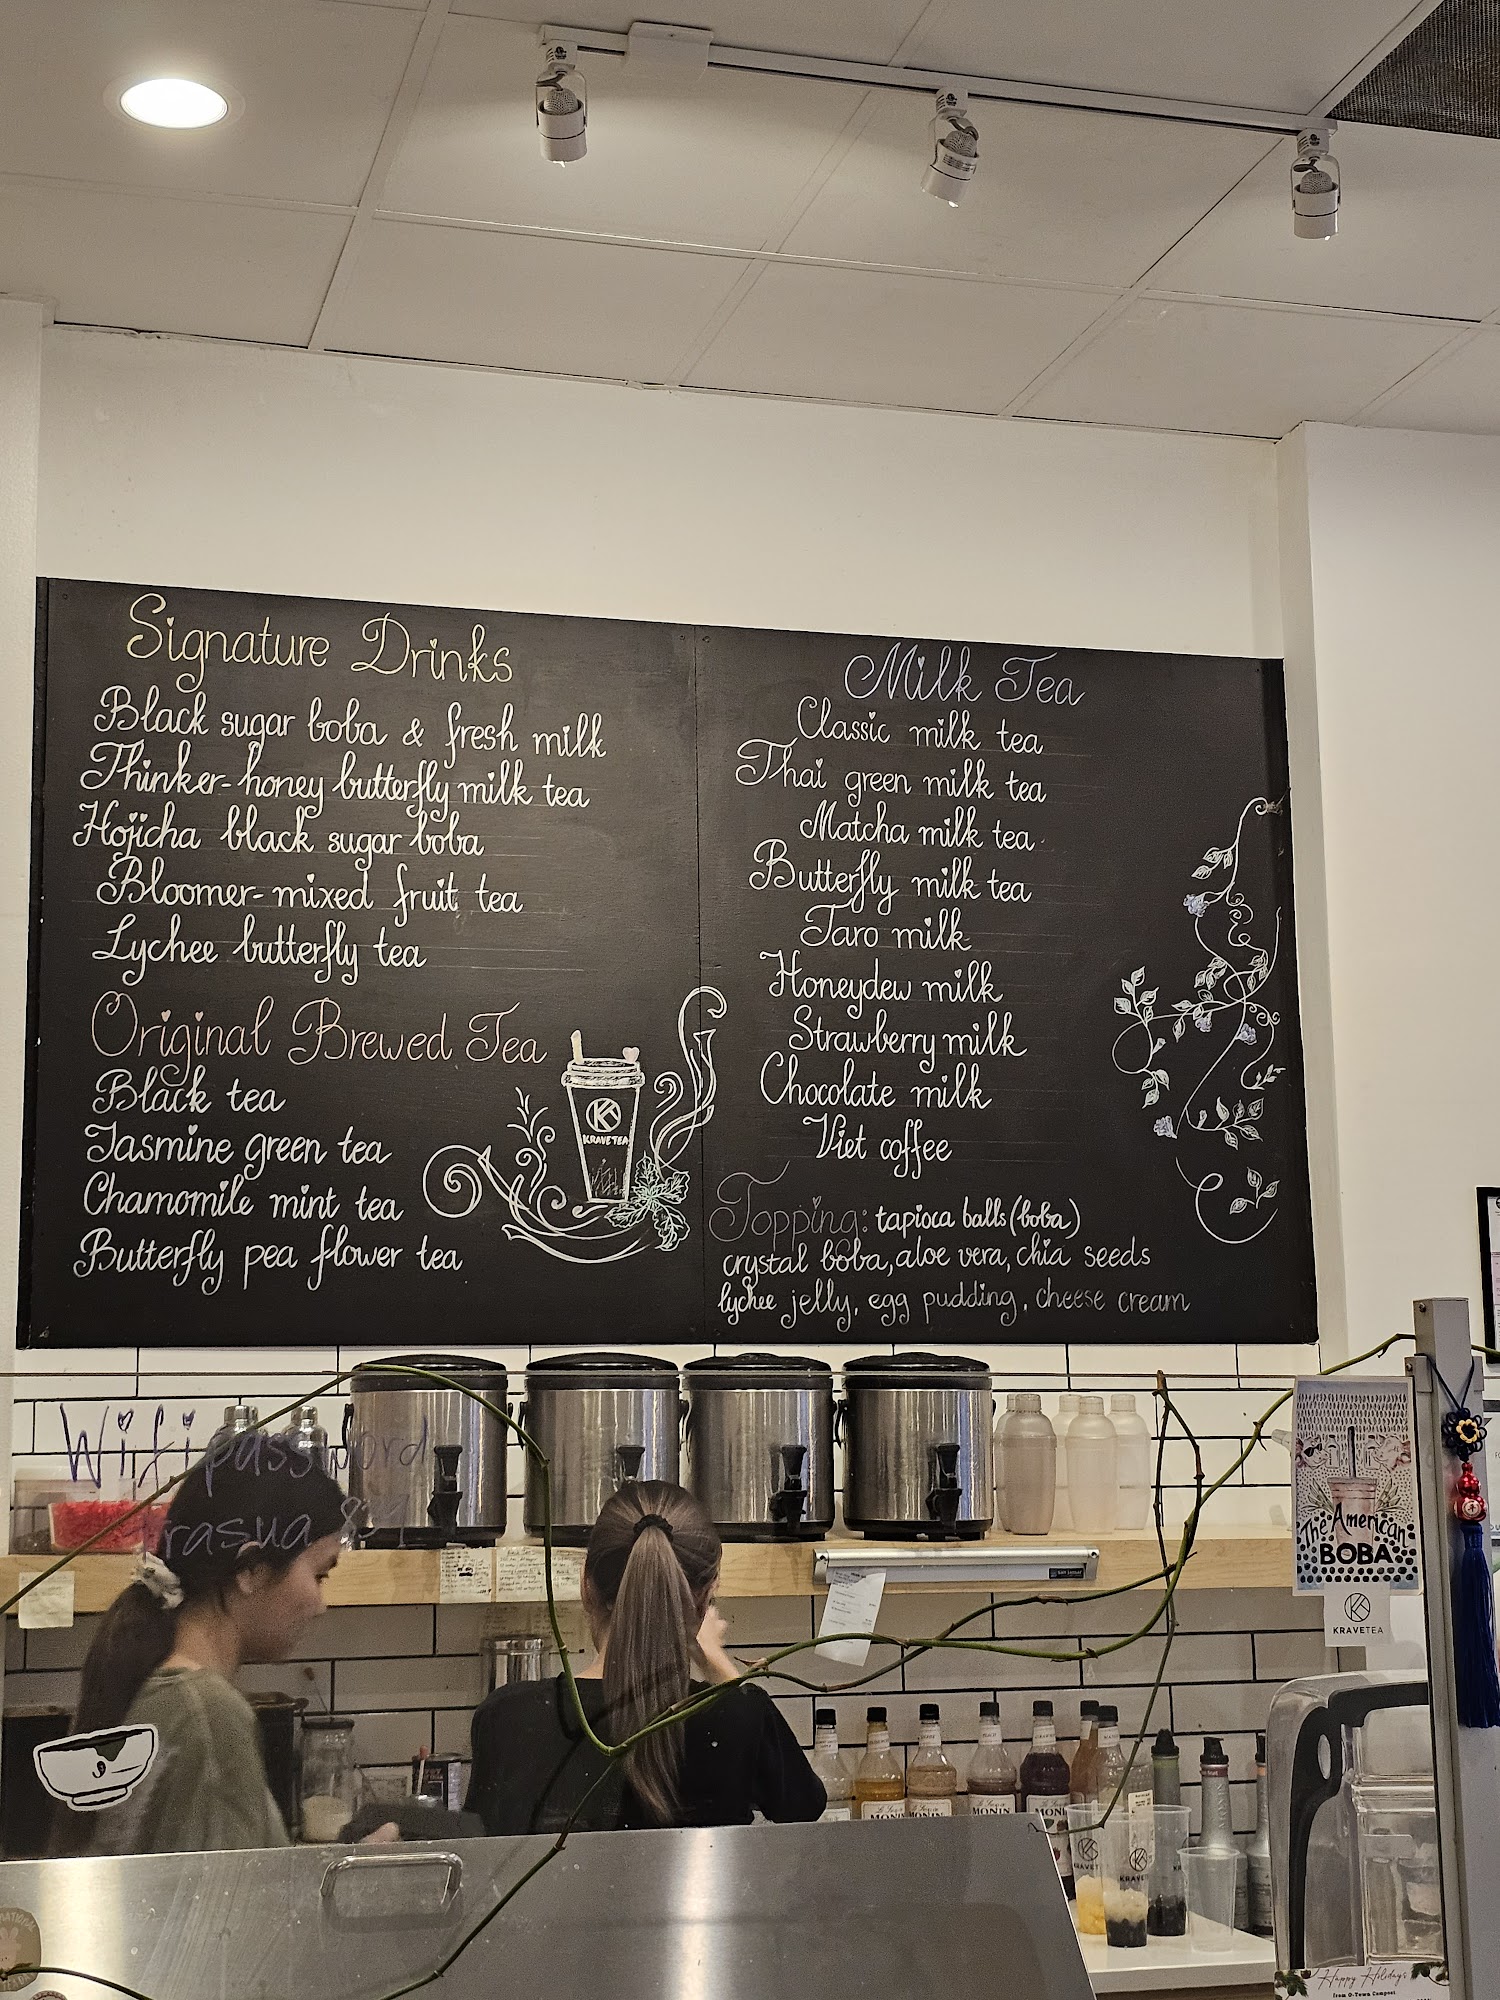 Signature Drinks
Black sugar boba & fresh milk
Thinker-honey butterfly milk tea
Hojicha black sugar boba
Bloomer-mixed fruit tea
Lychee butterfly tea
Original Brewed Tea
Black tea
Jasmine green tea
Chamomile mint tea
Butterfly pea flower tea
KRAVETEA
Milk Tea
Classic milk tea
Thai green milk tea
Matcha milk tea
Butterfly milk tea
Taro milk
Honeydew milk
Strawberry milk
Chocolate milk
Viet coffee
Topping: tapioca balls (boba)
crystal boba, aloe vera, chia seeds
lychee jelly, egg pudding, cheese cream
Wifi password
The American
BOBA
KRAVETEA
MONIN
MONIN
MONIN
Happy Holidays
from O-Town Compost